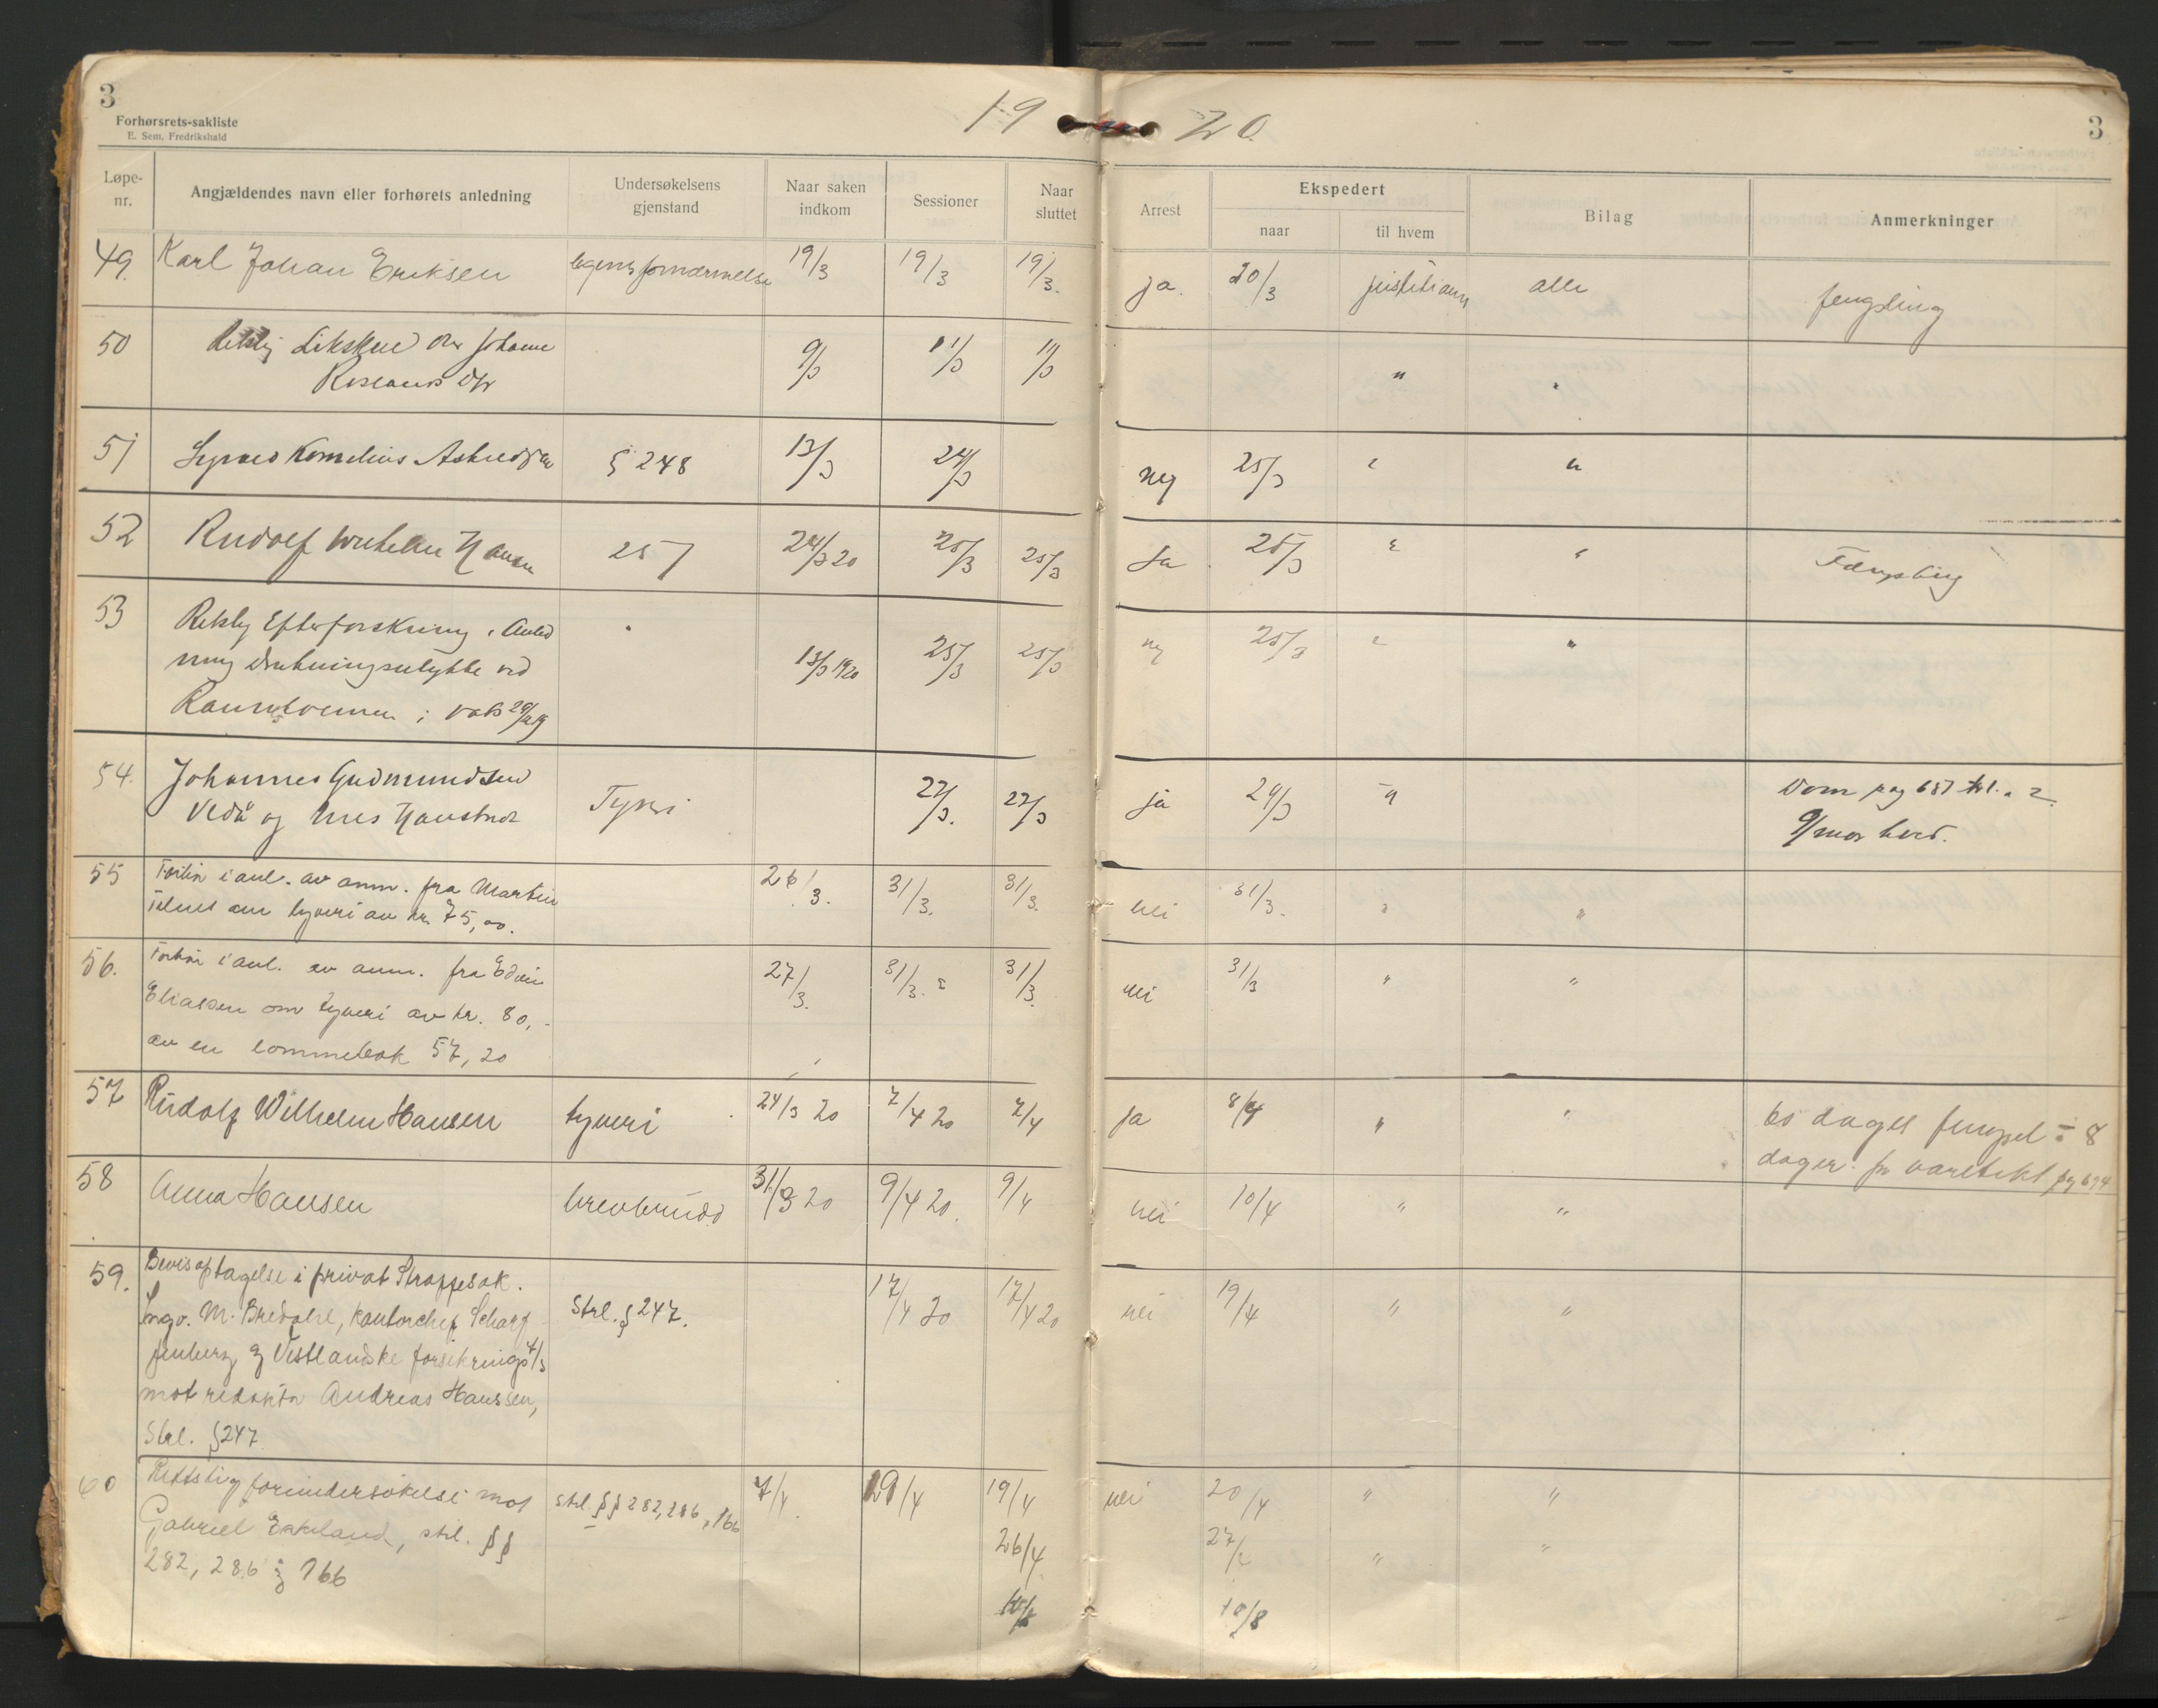 3
Forhørsrets-sakliste
E. Sem, Fredrikshald
19 20.
3
Løpe-nr.
Angjældendes navn eller forhørets anledning
Undersøkelsens gjenstand
Naar saken indkom
Sessioner
Naar sluttet
Arrest
Ekspedert
naar
til hvem
Bilag
Anmerkninger
49. Karl Johan Eriksen legemsfornærmelse 19/3 19/3 19/3. ja. 20/3 alle fengsling
50 Retslig Likskue over Johanne
9/3 11/3 11/3 " "
51 Kornelius § 248 13/3 24/3 nej 25/3 " "
52 Rudolf Wilhelm Hansen 257 24/3 20 25/3 25/3 Ja 25/3 " " Fængsling
53 Retslig Efterforskning i Anled
ning drukningsulykke ved
i Vats
13/3 1920 25/3 25/3 nej 25/3 " "
54. Johannes Gudmundsen
og Hanstveit
Tyveri 27/3. 27/3 ja 29/3 " Dom pag 687
55 Forhør i anl. av anm. fra Martin
om tyveri av kr. 75,00.
26/3. 31/3. 31/3. nei 31/3. " "
56. Forhør i anl. av anm. fra Edvin
Eliassen om tyveri av kr. 80,-
av en lommebok 57,20
27/3. 31/3. 31/3. nei 31/3 " "
57 Rudolf Wilhelm Hansen tyveri 24/3 20 7/4 20 7/4 ja 8/4 " " 60 dages fengsel ÷ 8
dager for varetekt pg 694
58 Anna Hansen brevbrudd 31/3 20 9/4 20. 9/4 nei 10/4 " "
59. Bevisoptagelse i privat Straffesak.
Ingv. M. Bredahl, kontorchef Scharf
fenberg og Vestlandske forsikrings A/S
mot redaktør Andreas Hanssen,
Strl. § 247
Strl. § 247. 17/4 20 17/4 20 nei 19/4 " "
60 Rettslig forundersøkelse mot
Gabriel , strl. §§
282, 286 og 166
Strl. §§ 282, 286, 166 7/4. 19/4 19/4 nei 20/4 " "
26/4. 27/4 " "
10/8 10/8